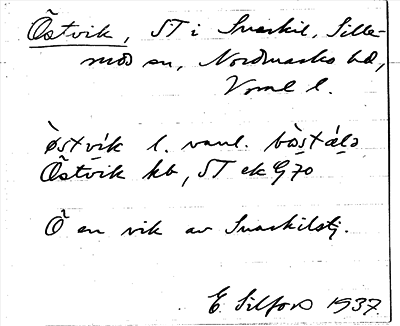 Östvik, ST i Svaskil, Sille-
mos sn, Nordmarks hd,
Vrml l.
östvik l. vanl. böståls
Östvik kb, ST ek G 70
Ö en vik av Svaskilstj.
E. Silfors 1937.